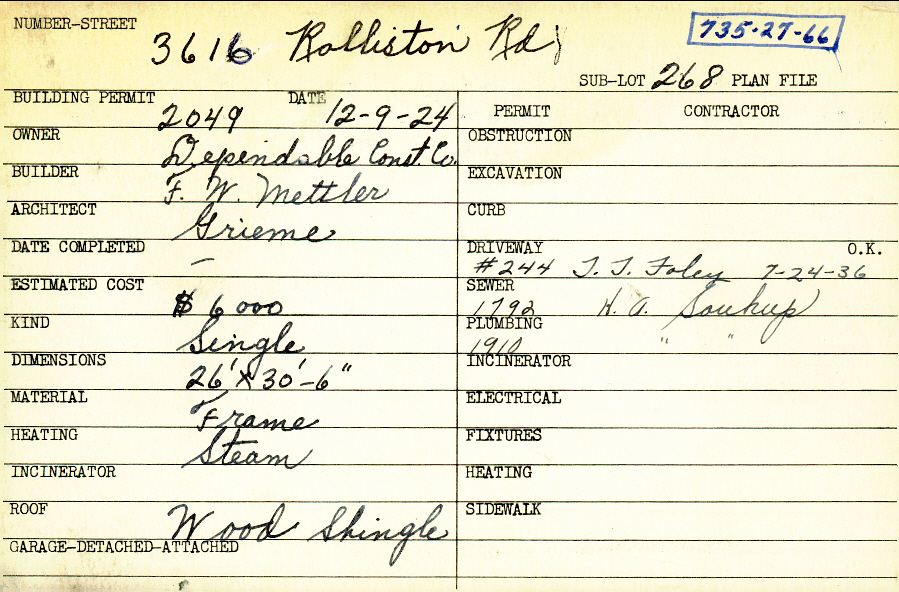 NUMBER-STREET
3616 Rolliston Rd
735-27-66
SUB-LOT 268 PLAN FILE
BUILDING PERMIT 2049 DATE 12-9-24
OWNER Dependable Const. Co.
BUILDER F. W. Mettler
ARCHITECT Grieme
DATE COMPLETED —
ESTIMATED COST $6000
KIND Single
DIMENSIONS 26' x 30'-6"
MATERIAL Frame
HEATING Steam
INCINERATOR
ROOF Wood Shingle
GARAGE-DETACHED-ATTACHED
PERMIT CONTRACTOR
OBSTRUCTION
EXCAVATION
CURB
DRIVEWAY O.K.
#244 T. T. Foley 7-24-36
SEWER
1792 H. A. Soukup
PLUMBING
1910 " "
INCINERATOR
ELECTRICAL
FIXTURES
HEATING
SIDEWALK